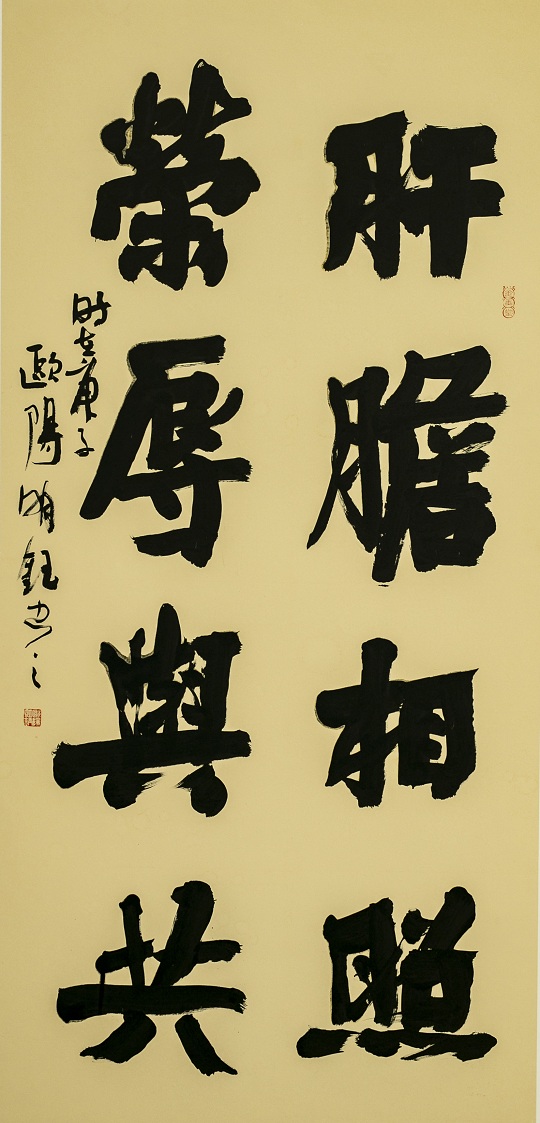 肝膽相照
榮辱與共
時在庚子
歐陽明鈺書之